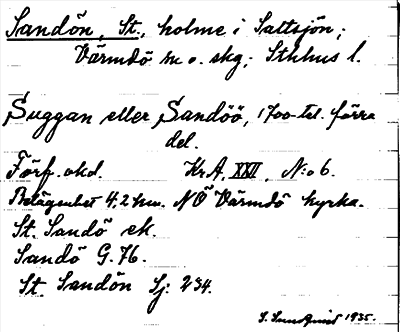 Sandön, St., holme i Saltsjön;
Värmdö sn o. skg; Sthlms l.
Suggan eller Sandöö, 1700-tal. förra
del.
Förf. okd. Kr.A. XXII, N:o 6.
Belägenhet 4,2 km. NÖ Värmdö kyrka.
St. Sandö ek.
Sandö G. 76.
St. Sandön Sj. 234.
S. Sundquist 1935.